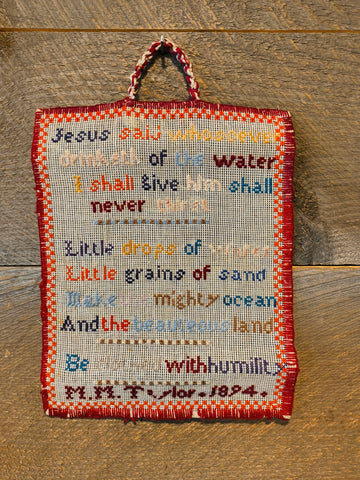 Jesus said whosoever
drinketh of the water
I shall Give him shall
never thirst
Little drops of water
Little grains of sand
Make the mighty ocean
And the beauteous land
Be with humility
M. M. Taylor - 1894.